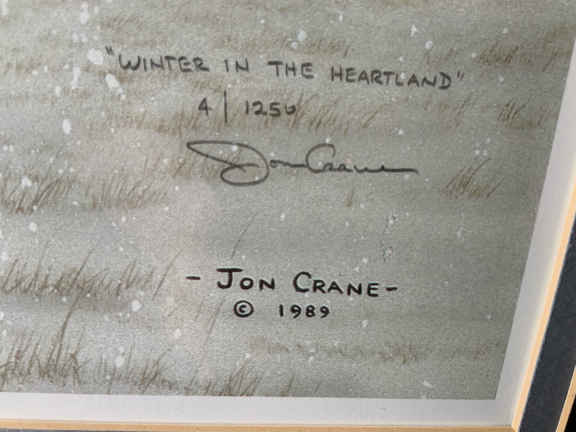 "WINTER IN THE HEARTLAND"
4/1250
Jon Crane
- JON CRANE -
© 1989